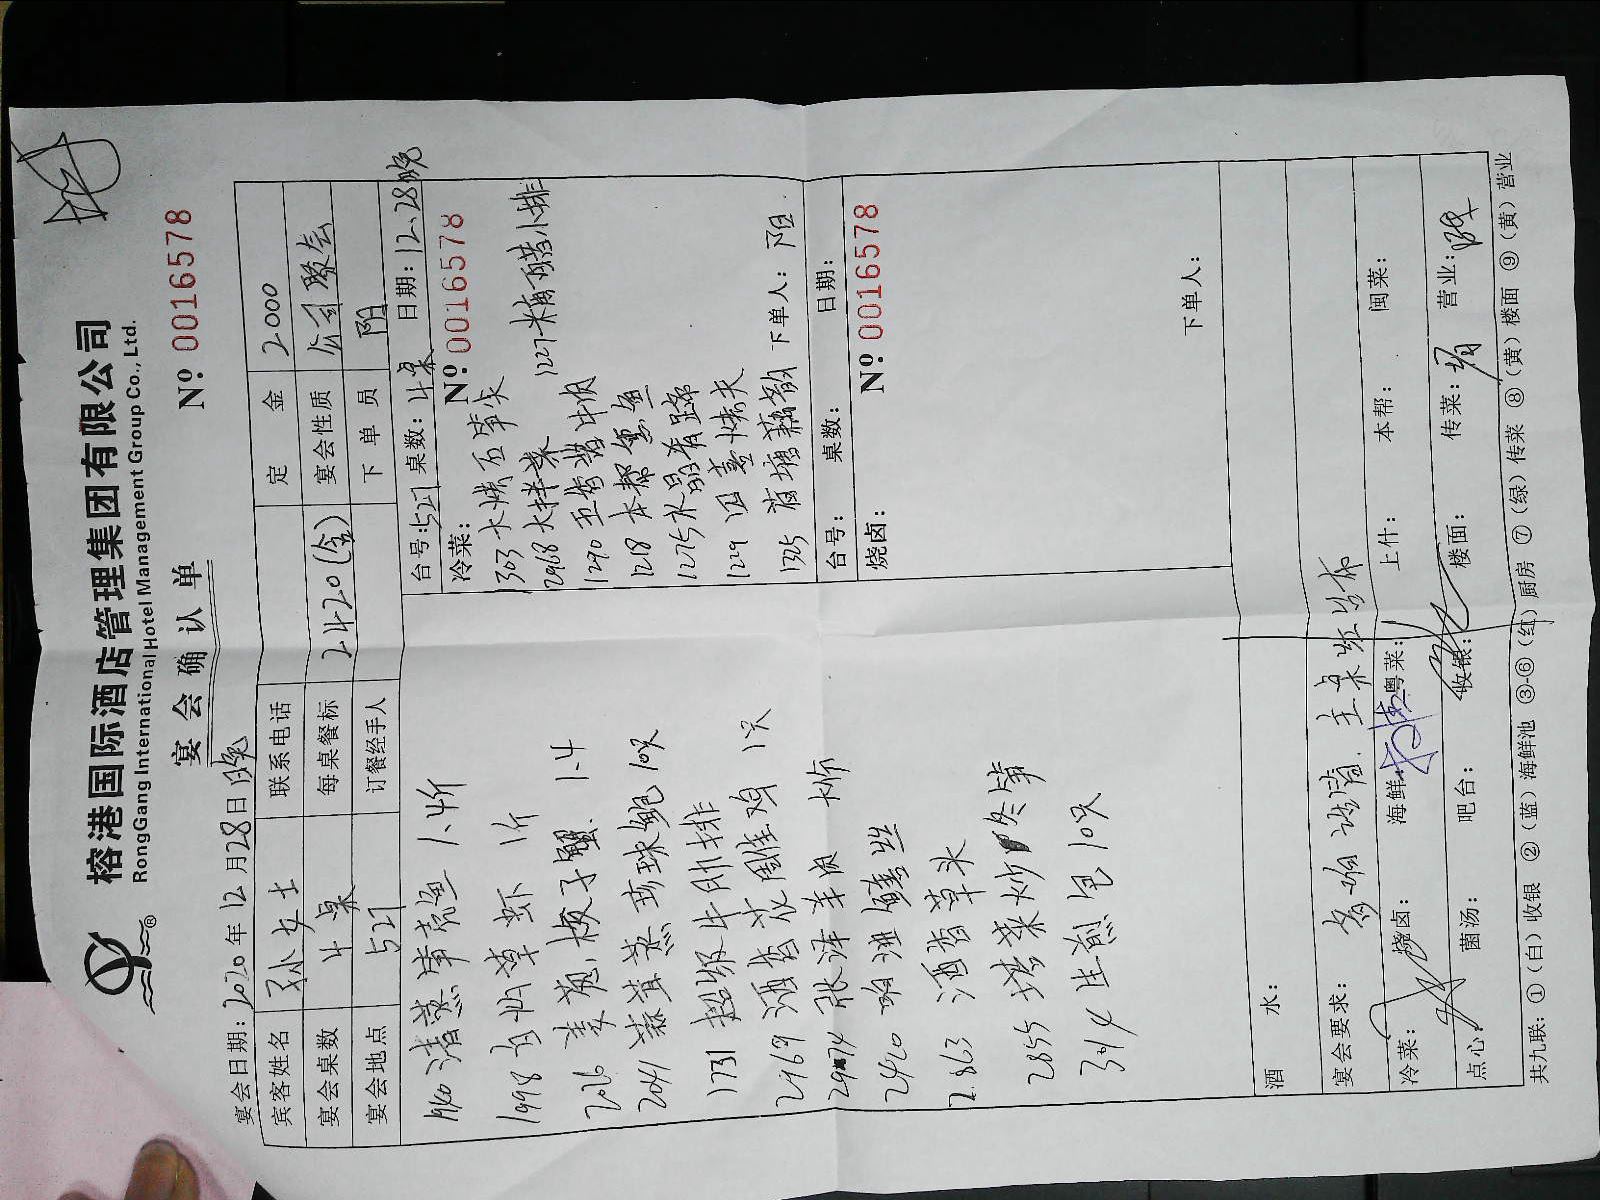 榕港国际酒店管理集团有限公司
RongGang International Hotel Management Group Co., Ltd.
宴会确认单
Nº: 0016578
宴会日期: 2020年12月28日晚
宾客姓名 孙女士 联系电话 定金 2000
宴会桌数 4桌 每桌餐标 2420(含) 宴会性质 公司聚会
宴会地点 527 订餐经手人 下单员 阳
清蒸 1.4斤
1998 草虾 1斤
2016 姜葱 梭子蟹 1.4
2041 蒜茸蒸 珍珠鲍 10只
1731 超级牛肋排
2969 酒香花雕鸡 1只
张泽羊肉
2420 响油鳝丝
2863 酒香草头
2855 塔菜炒冬笋
生煎包 10只
台号: 527 桌数: 4桌 日期: 12.28晚
冷菜: Nº 0016578
1303 大烤
2968 大拌菜
1290 五香酱牛肉
1218 本帮熏鱼
1275 水晶肴蹄
1229 四喜烤夫
1325
1227 糖醋小排
下单人: 阳
台号: 桌数: 日期:
烧卤: Nº 0016578
下单人:
酒水:
宴会要求:
冷菜: 烧卤: 海鲜: 粤菜: 上什: 本帮: 闽菜:
点心: 菌汤: 吧台: 收银: 楼面: 传菜: 营业:
共九联: ①(白)收银 ②(蓝)海鲜池 ③-⑥(红)厨房 ⑦(绿)传菜 ⑧(黄)楼面 ⑨(黄)营业